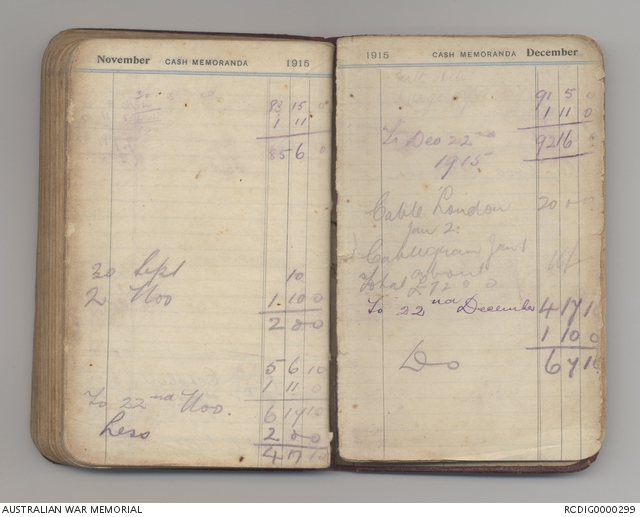 November CASH MEMORANDA 1915
83 15 0
1 11
85 6 0
30 Sept 10
2 Nov 1 10 0
2 0 0
5 6 10
1 11 0
To 22nd Nov. 6 17 10
Less 2 0 0
4 17 10
1915 CASH MEMORANDA December
91 5 0
1 11 0
To Dec 22nd 92 16 0
1915
Cable London 20
Jan 2.
Cablegram Jan 1
Total about
£72 0 0
To 22nd December 4 17 10
1 10 0
Do 6 7 10
AUSTRALIAN WAR MEMORIAL
RCDIG0000299